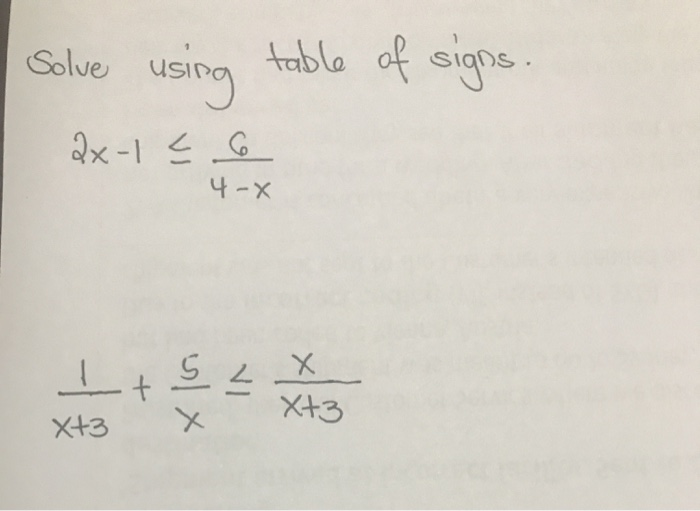 Solve using table of signs.
2x-1 ≤ 6/(4-x)
1/(x+3) + 5/x ≤ x/(x+3)